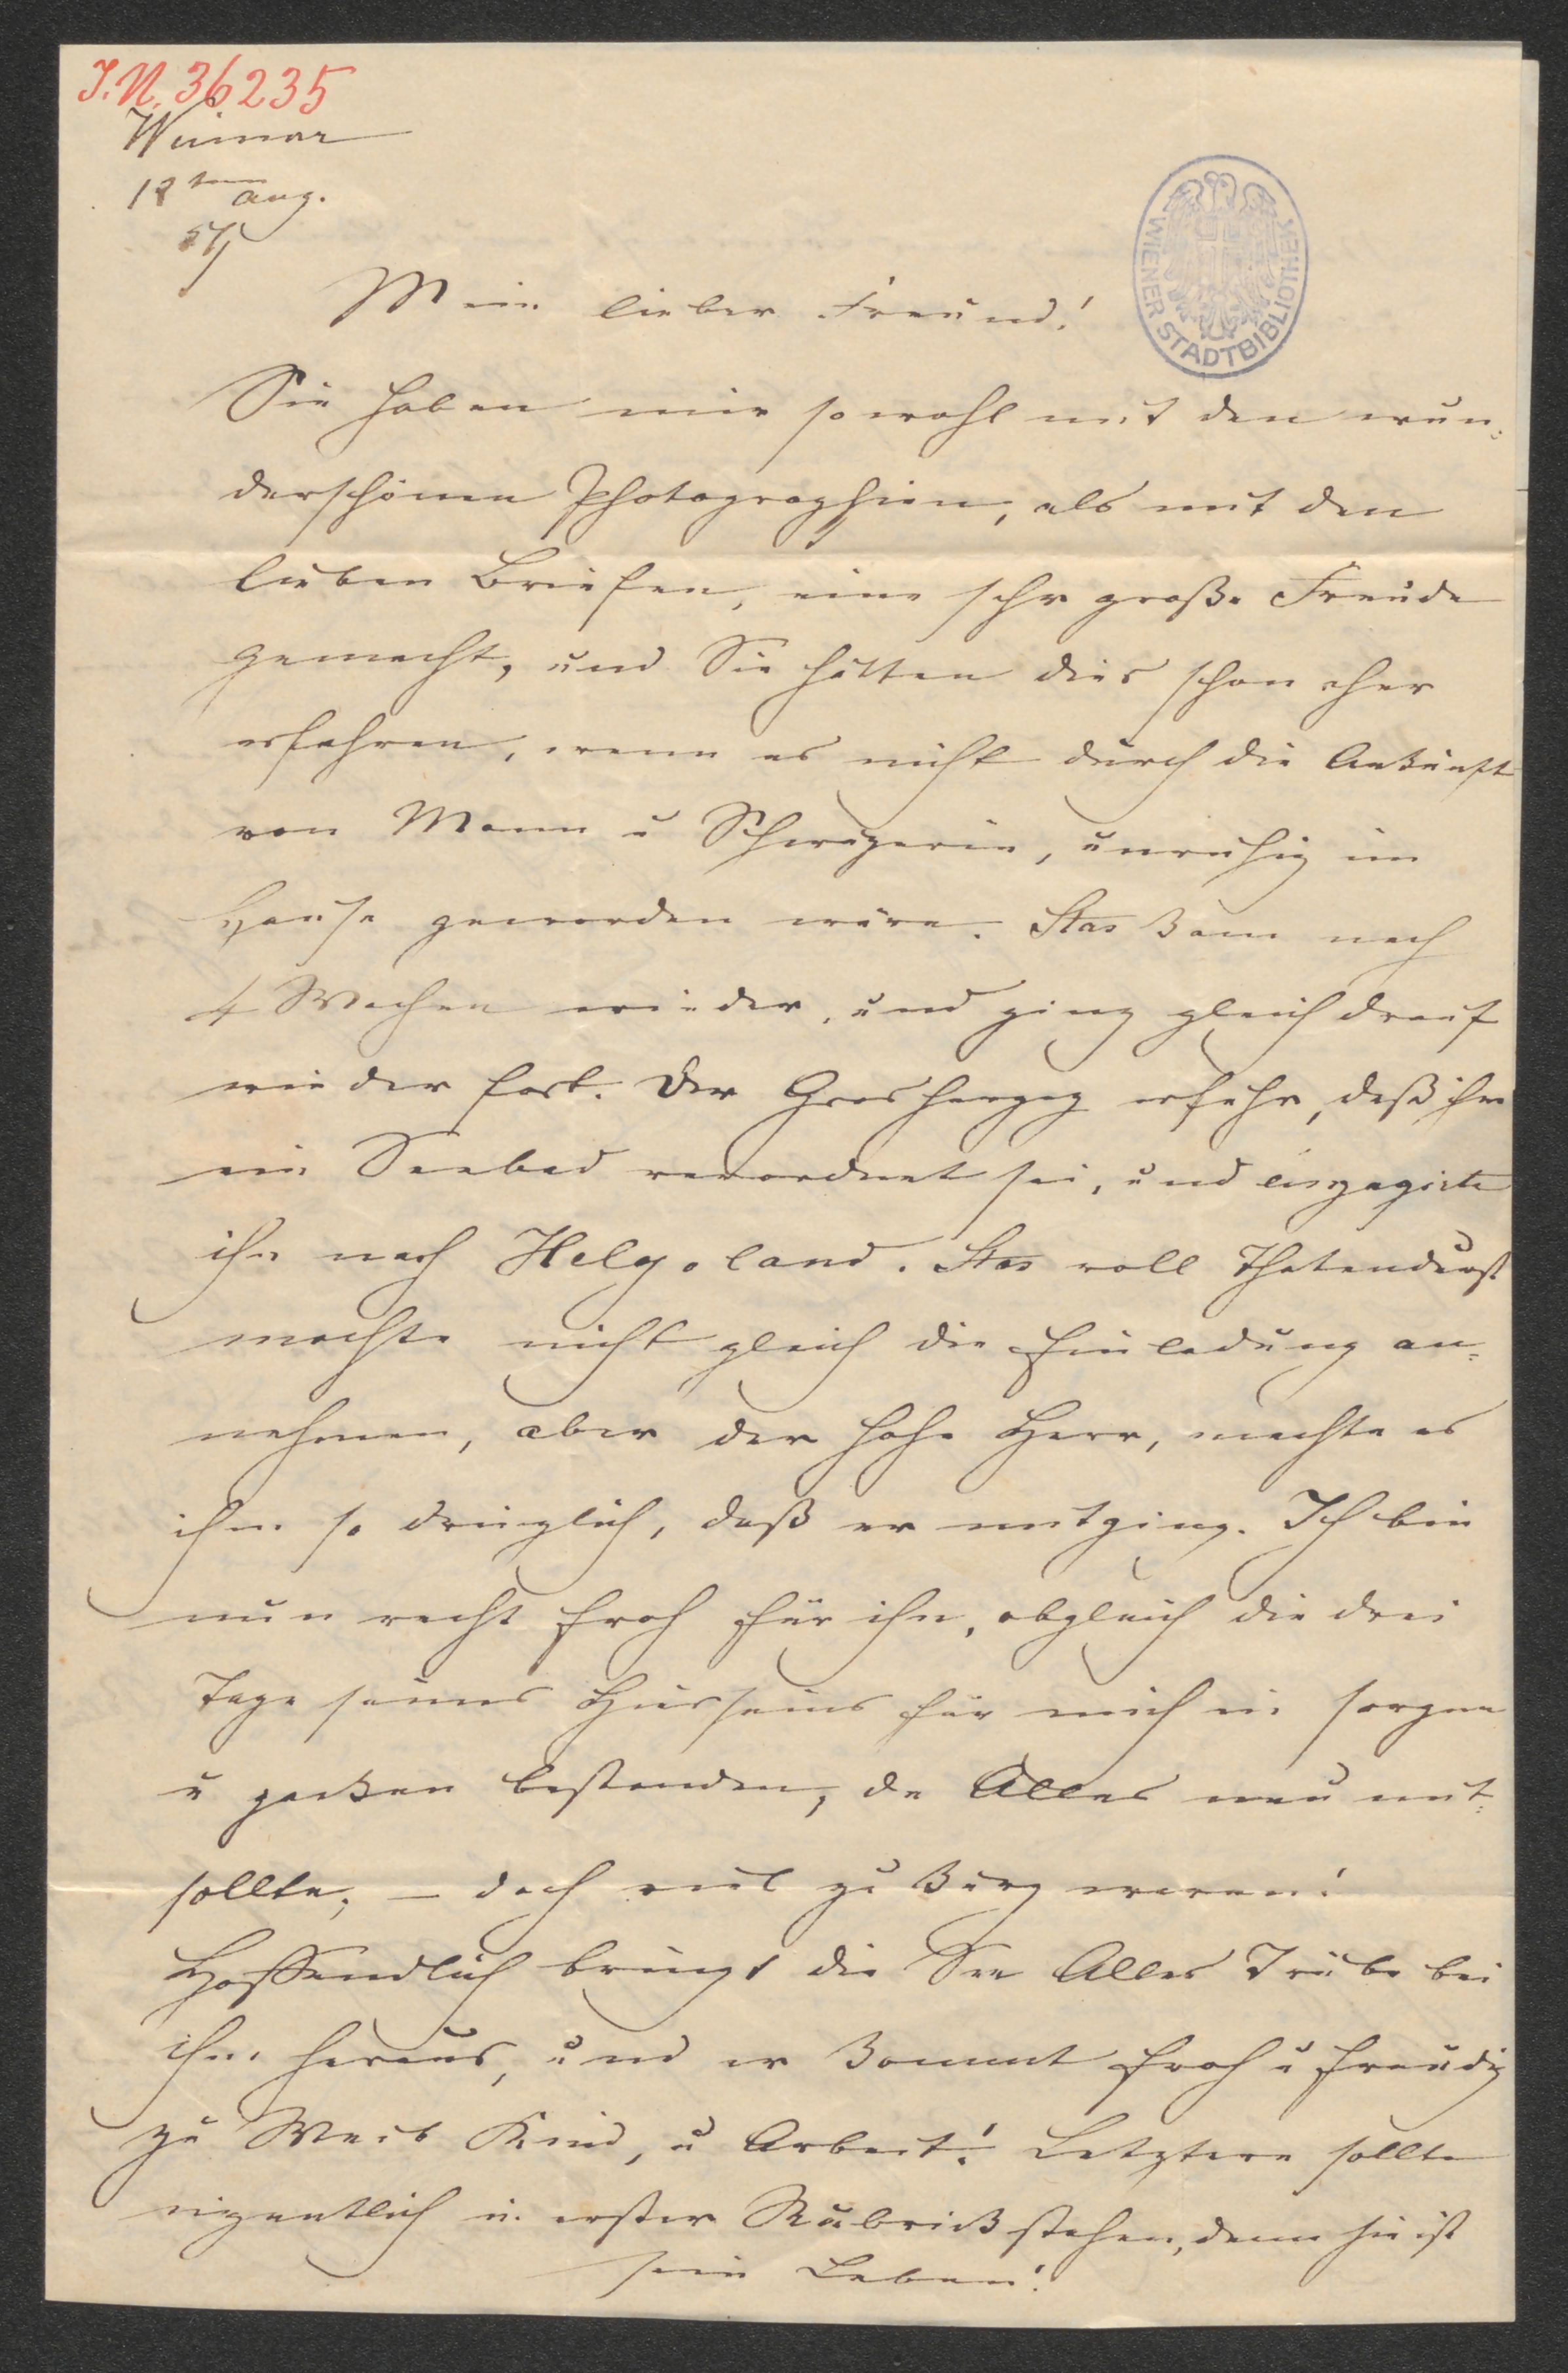 J.N. 36235
Weimar
12ten Aug.
WIENER STADTBIBLIOTHEK
Mein lieber Freund!
Sie haben mir sowohl mit den wun-
derschönen Photographien, als mit den
lieben Briefen, eine sehr große Freude
gemacht, und Sie hätten dies schon eher
erfahren, wenn es nicht durch die Ankunft
von Mama u Schwägerin, unruhig im
Hause geworden wäre. Stas kam nach
4 Wochen wieder, und ging gleich drauf
wieder fort. Der Grosherzog erfuhr, daß ihm
ein Seebad verordnet sei, und engagirte
ihn nach Helgoland. Stas voll Thatendurst
mochte nicht gleich die Einladung an-
nehmen, aber der hohe Herr, machte es
ihm so dringlich, daß er mitging. Ich bin
nun recht froh für ihn, obgleich die drei
Tage seines Hierseins für mich in sorgen
u packen bestanden, da Alles neu mit-
sollte, – doch viel zu kurz waren!
Hoffendlich bringt die See Alles Trübe bei
ihm heraus, und er kommt froh u freudig
zu Weib Kind, u Arbeit! Letztere sollte
eigentlich in erster Rubrick stehen, denn sie ist
sein Leben!